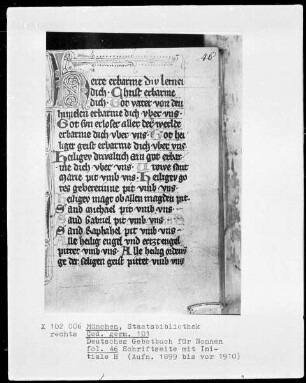 46
Herre erbarme div vber nei
dich · Christ erbarme
dich · Got vater von den
himelen erbarme dich vber vns ·
Got sun erloser aller der werlde
erbarme dich vber vns · Got hei
liger geist erbarme dich vber vns
Heiliger drivalt ein got erbar
me dich vber vns · Trowe sant
marie pit vmb vns · Heiligev go
tes gebererinne pit vmb vns ·
Heiligev magt ob allen magden pit ·
Sand michael pit vmb vns ·
Sand Gabriel pit vmb vns ·
Sand Raphahel pit vmb vns ·
Alle heilig engel vnd ertzengel
pittet vmb vns · Alle heilig orden
ge der seligen geist pittet vmb vns
X 102 006 München, Staatsbibliothek
rechts Cod. germ. 101
Deutsches Gebetbuch für Nonnen
fol. 46 Schriftseite mit Ini-
tiale H (Aufn. 1899 bis vor 1910)